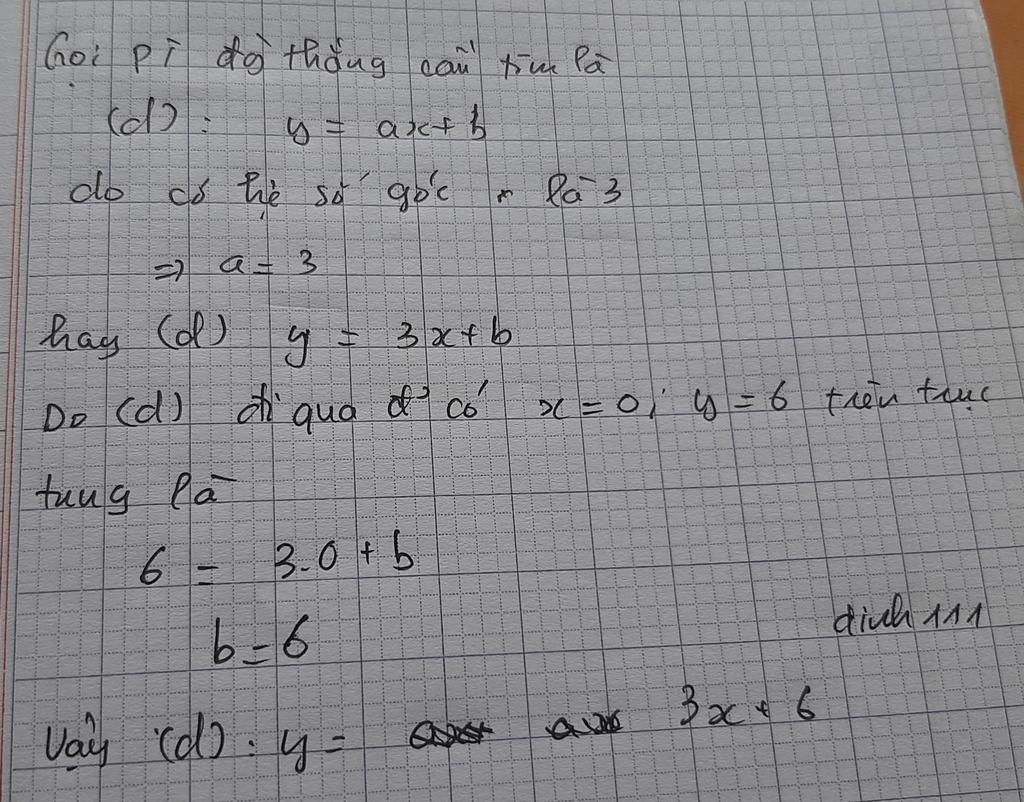 Gọi pt đg thẳng cần tìm là
(d): y = ax + b
do có hệ số góc là 3
=> a = 3
hay (d) y = 3x + b
Do (d) đi qua đ' có x = 0; y = 6 trên trục
tung là
6 = 3.0 + b
b = 6
dinh 111
Vậy (d): y = 3x + 6